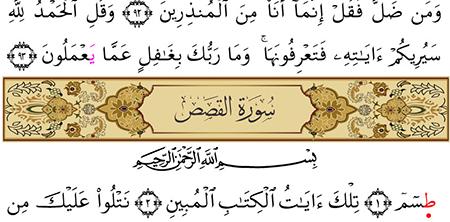 وَمَن ضَلَّ فَقُلْ إِنَّمَآ أَنَا۠ مِنَ ٱلْمُنذِرِينَ ﴿٩٢﴾ وَقُلِ ٱلْحَمْدُ لِلَّهِ
سَيُرِيكُمْ ءَايَٰتِهِۦ فَتَعْرِفُونَهَا ۚ وَمَا رَبُّكَ بِغَٰفِلٍ عَمَّا يَعْمَلُونَ ﴿٩٣﴾
سُورَةُ القَصَصِ
بِسْمِ ٱللَّهِ ٱلرَّحْمَٰنِ ٱلرَّحِيمِ
طسٓمٓ ﴿١﴾ تِلْكَ ءَايَٰتُ ٱلْكِتَٰبِ ٱلْمُبِينِ ﴿٢﴾ نَتْلُوا۟ عَلَيْكَ مِن